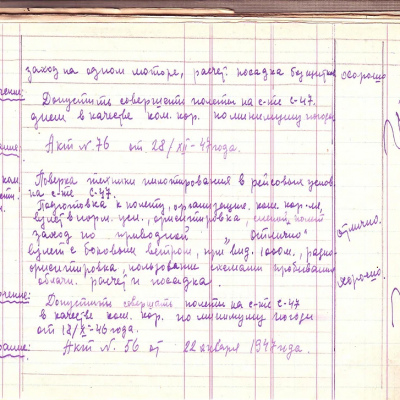 заход на одном моторе, расчет. посадка без щитков хорошо
чение: Допустить совершать полеты на с-те С-47.
днем в качестве ком. кор. по минимуму погоды
Акт № 76 от 28/XII-47 года.
ком. Поверка техники пилотирования в рейсовых услов.
на с-те С-47.
Подготовка к полету, организация
взлет в норм. усл., ориентировка, полет отлично.
заход по приводной "отлично"
взлет с боковым ветром, при вид. 1000м., радио-
ориентировка, пользование схемами пробивания хорошо.
облачн. расчет и посадка.
чение: Допустить совершать полеты на с-те С-47
в качестве ком. кор. по минимуму погоды
от 18/X-46 года.
вание: Акт №. 56 от 22 января 1947 года.